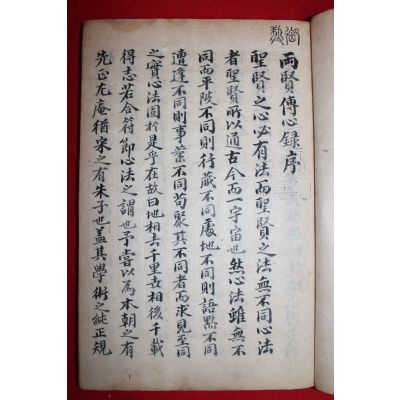 御製
兩賢傳心錄序
聖賢之心必有法而聖賢之法無不同心法
者聖賢所以通古今而一宇宙也然心法雖無不
同而平陂不同則行藏不同處地不同則語默不同
遭逢不同則事業不同苟聚其不同者而求見至同
之實心法固於是乎在故曰地相去千里世相後千載
得志若合符節心法之謂也予嘗以為本朝之有
先正尤庵猶宋之有朱子也盖其學術之純正規